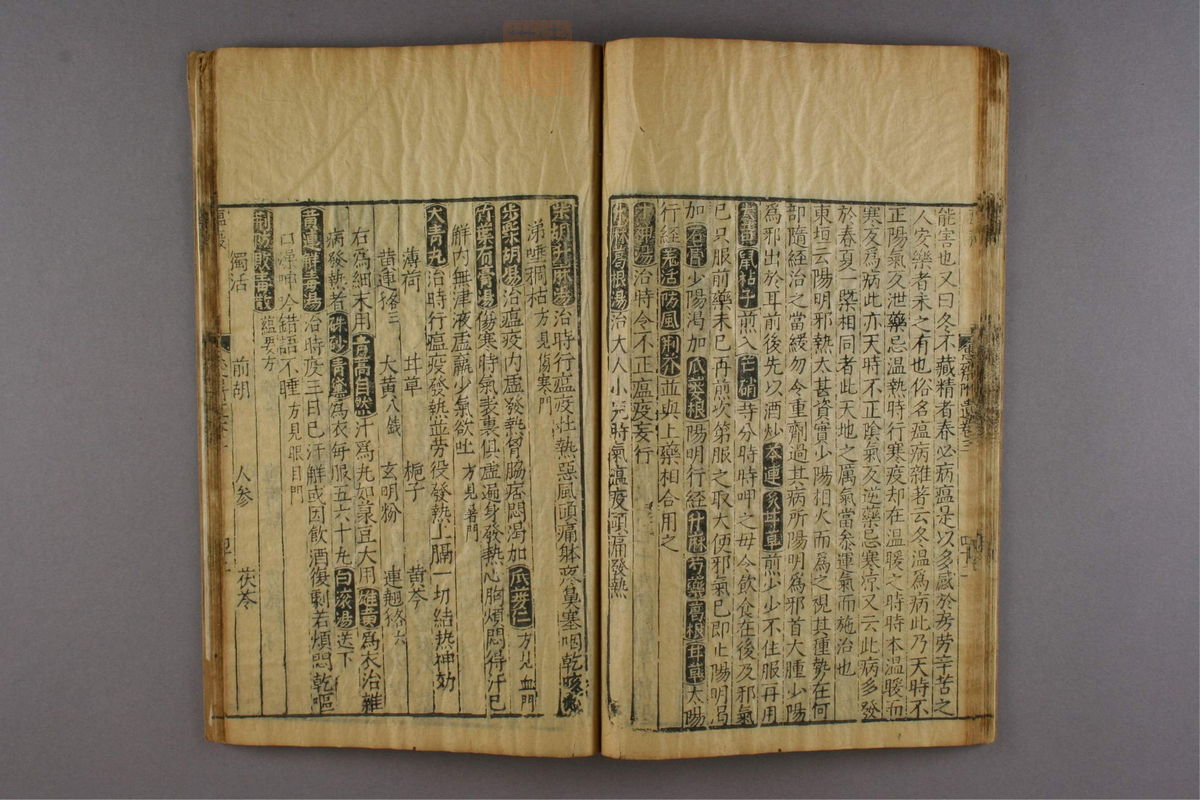 能害也又曰冬不藏精者春必病瘟是以多感於房劳辛苦之
人安樂者未之有也俗名瘟病雜者云冬温為病此乃天時不
正陽氣久泄藥忌温熱時行寒疫却在温暖之時時本温暖而
寒反為病此亦天時不正陰氣久逆藥忌寒凉又云此病多發
於春夏一槩相同者此天地之厲氣當叅運氣而施治也
東垣云陽明邪熱太甚資實少陽相火而為之視其腫勢在何
部隨経治之當緩勿令重劑過其病所陽明為邪首大腫少陽
為邪出於耳前後先以酒炒 連炙甘草煎少少不住服再用
鼠粘子煎入芒硝等分時時呷之毋令飲食在後及邪氣
已只服前藥未已再煎次第服之取大便邪氣已即止陽明渴
加石膏少陽渴加瓜蔞根陽明行経升麻芍藥葛根甘草太陽
行経羗活防風荆芥並與上藥相合用之
神湯治時令不正瘟疫妄行
升麻葛根湯治大人小児時氣瘟疫頭痛發熱
柴胡升麻湯治時行瘟疫壮熱惡風頭痛躰疼鼻塞咽乾
涕唾稠粘方見傷寒門
小柴胡湯治瘟疫内虚發熱胷脇痞悶渴加瓜蒌仁方見血門
竹葉石膏湯傷寒時氣表裏俱虚遍身發熱心胸煩悶得汗已
觧内無津液虚羸少氣欲吐方見暑門
大青丸治時行瘟疫發熱並劳役發熱上膈一切結热神効
薄荷 甘草 梔子 黄芩
黄連各三 大黄八錢 玄明粉 連翹各六
右為細末用青蒿自然汁為丸如菉豆大用雄黄為衣治雜
病發熱者硃砂青黛為衣毎服五六十丸白滚湯送下
黄連觧毒湯治時疫三日已汗觧或因飲酒復劇若煩悶乾嘔
口燥呻吟錯語不睡方見眼目門
荆防敗毒散瘟要方
獨活 前胡 人参 茯苓